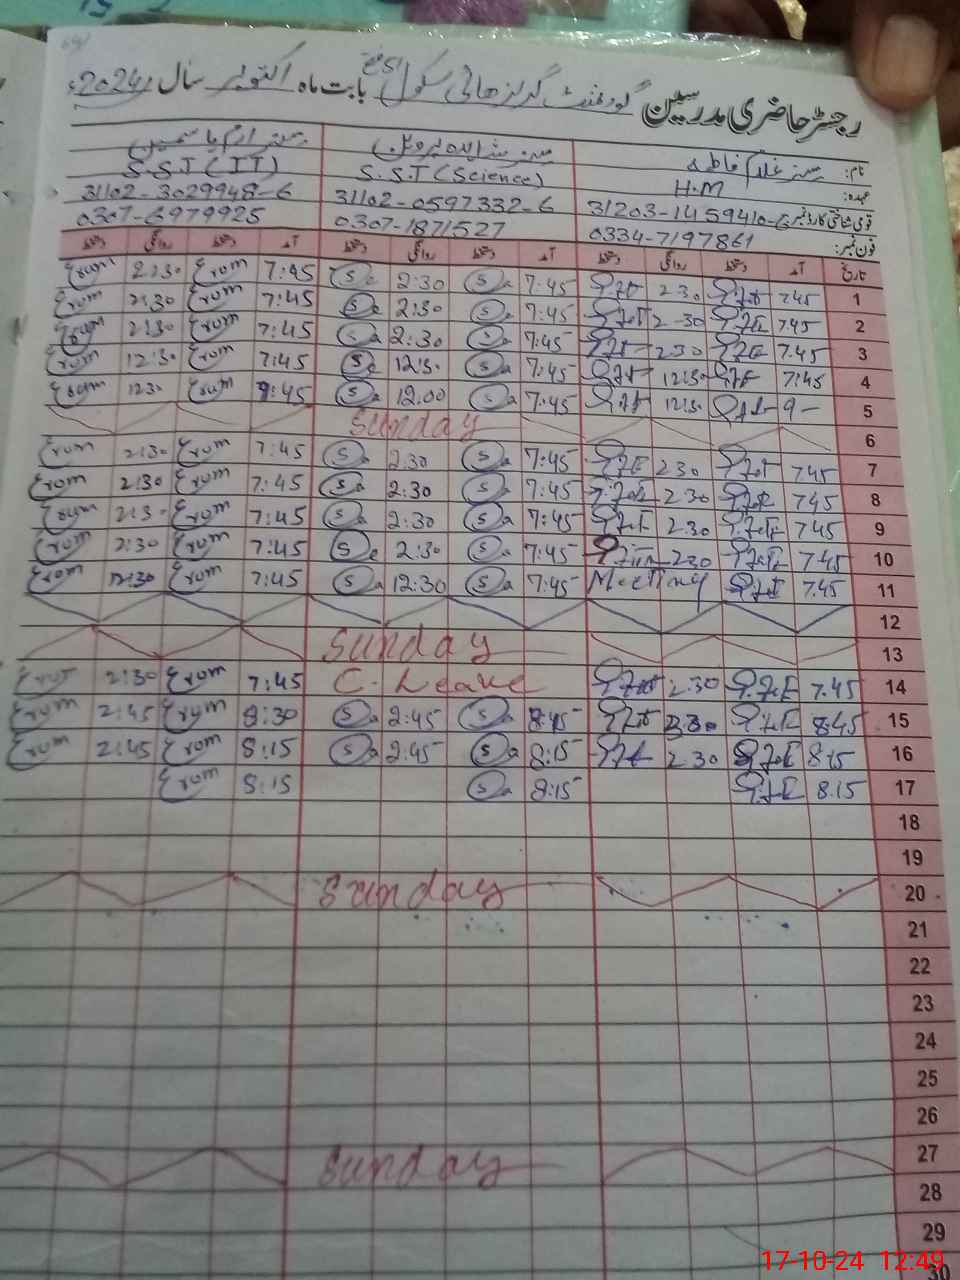 رجسٹر حاضری مدرسین گورنمنٹ گرلز ھائی سکول بابت ماہ اکتوبر سال 2024ء
نام: مسز غلام فاطمہ مسز شاہدہ پروین مسز ارم یاسمین
عہدہ: H.M S.S.T (Science) S.S.T (IT)
قومی شناختی کارڈ نمبر 31203-1459410-6 31102-0597332-6 31102-3029948-6
فون نمبر: 0334-7197861 0307-1871527 0307-6979925
تاریخ آمد دستخط روانگی دستخط آمد دستخط روانگی دستخط آمد دستخط روانگی دستخط
1 7.45 2.30 7:45 Sa 2:30 Sa 7:45 Erum 2:30 Erum
2 7.45 2.30 7:45 Sa 2:30 Sa 7:45 Erum 2:30 Erum
3 7.45 2.30 7:45 Sa 2:30 Sa 7:45 Erum 2:30 Erum
4 7.45 12.30 7:45 Sa 12:30 Sa 7:45 Erum 12:30 Erum
5 9- 12.30 7:45 Sa 12.00 Sa 7:45 Erum 12.30 Erum
6 Sunday
7 7.45 2.30 7:45 Sa 2:30 Sa 7:45 Erum 2:30 Erum
8 7.45 2.30 7:45 Sa 2:30 Sa 7:45 Erum 2:30 Erum
9 7.45 2.30 7:45 Sa 2:30 Sa 7:45 Erum 2:30 Erum
10 7.45 2.30 7:45 Sa 2:30 Sa 7:45 Erum 2:30 Erum
11 7.45 Meeting 7:45 Sa 12:30 Sa 7:45 Erum 12:30 Erum
12
13 Sunday
14 7.45 2.30 C. Leave 7:45 Erum 2:30 Erum
15 8.45 2.30 8:45 Sa 2:45 Sa 8:30 Erum 2:45 Erum
16 8.15 2.30 8:15 Sa 2:45 Sa 8:15 Erum 2:45 Erum
17 8.15 8:15 Sa 8:15 Erum
18
19
20 Sunday
21
22
23
24
25
26
27 Sunday
28
29
30
17-10-24 12:49